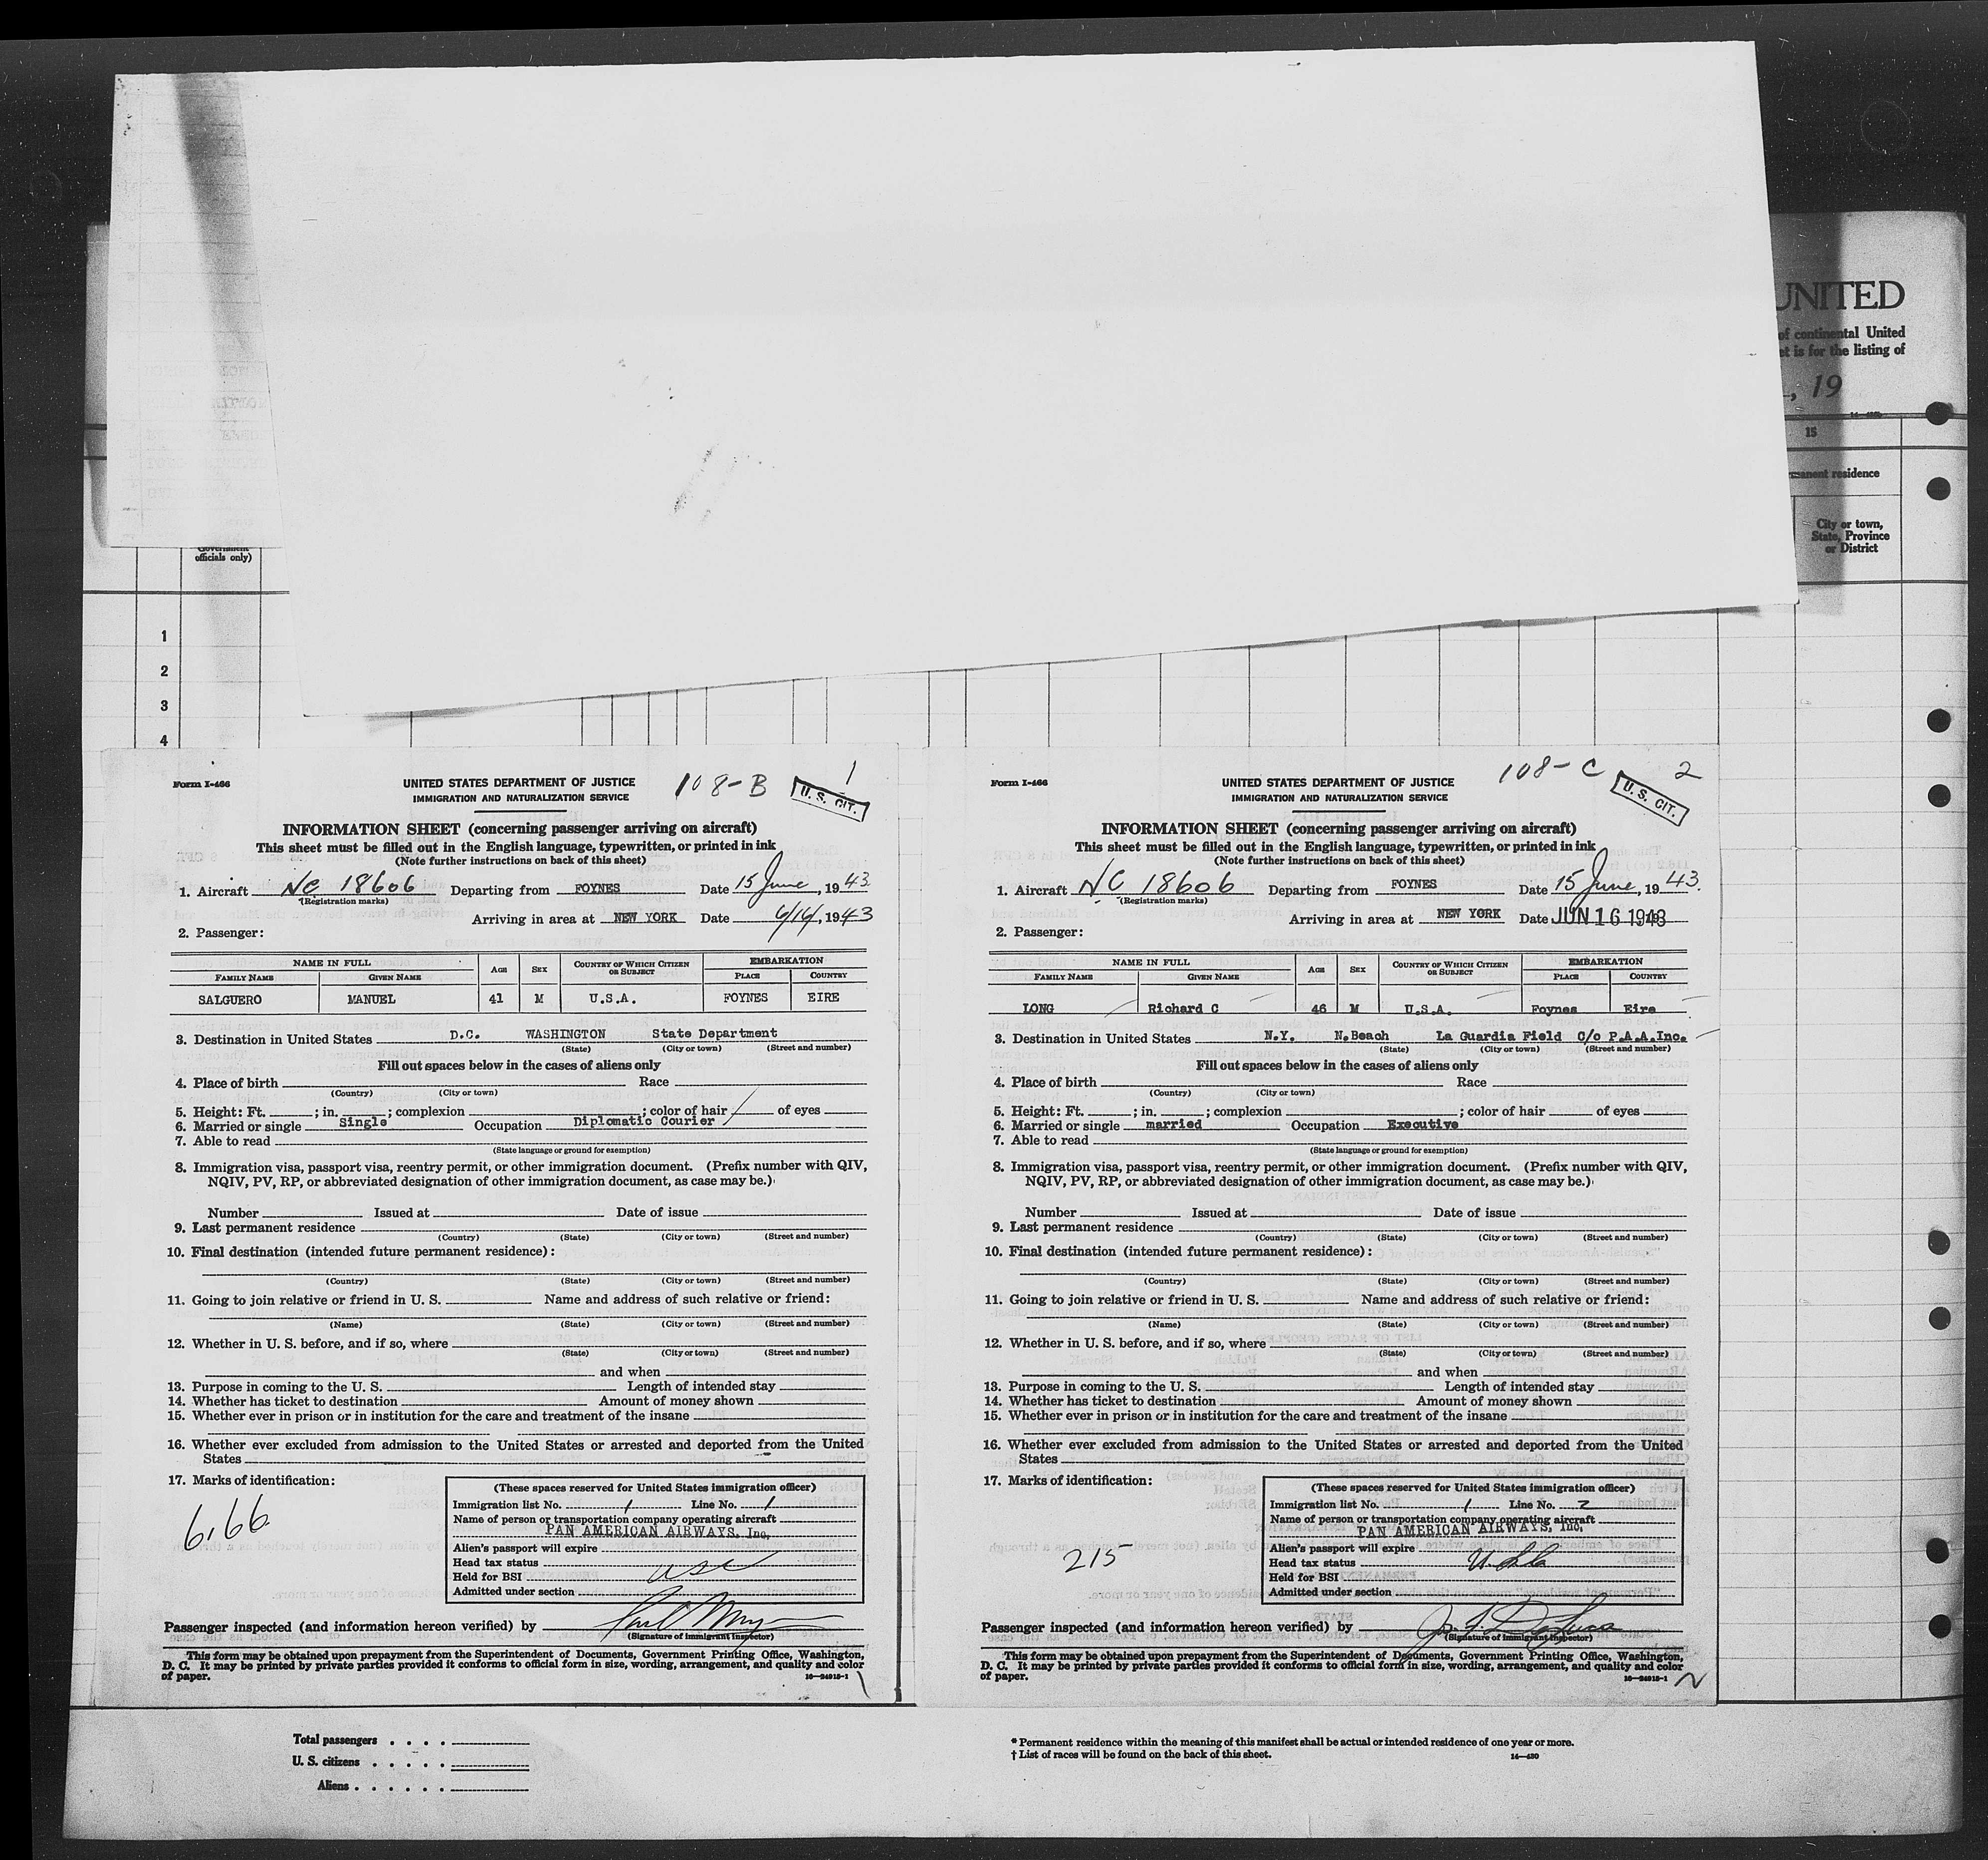 UNITED
of continental United
is for the listing of
, 19
15
residence
City or town,
State, Province
or District
Government
officials only)
1
2
3
4
Form I-466
UNITED STATES DEPARTMENT OF JUSTICE
IMMIGRATION AND NATURALIZATION SERVICE
108-B
1
U. S. CIT.
INFORMATION SHEET (concerning passenger arriving on aircraft)
This sheet must be filled out in the English language, typewritten, or printed in ink
(Note further instructions on back of this sheet)
1. Aircraft NC 18606 Departing from FOYNES Date 15 June, 1943
(Registration marks)
Arriving in area at NEW YORK Date 6/16, 1943
2. Passenger:
NAME IN FULL AGE SEX COUNTRY OF WHICH CITIZEN OR SUBJECT EMBARKATION
FAMILY NAME GIVEN NAME PLACE COUNTRY
SALGUERO MANUEL 41 M U.S.A. FOYNES EIRE
3. Destination in United States D.C. WASHINGTON State Department
(State) (City or town) (Street and number)
Fill out spaces below in the cases of aliens only
4. Place of birth Race
(Country) (City or town)
5. Height: Ft. ; in. ; complexion ; color of hair of eyes
6. Married or single Single Occupation Diplomatic Courier
7. Able to read
(State language or ground for exemption)
8. Immigration visa, passport visa, reentry permit, or other immigration document. (Prefix number with QIV,
NQIV, PV, RP, or abbreviated designation of other immigration document, as case may be.)
Number Issued at Date of issue
9. Last permanent residence
(Country) (State) (City or town) (Street and number)
10. Final destination (intended future permanent residence):
(Country) (State) (City or town) (Street and number)
11. Going to join relative or friend in U. S. Name and address of such relative or friend:
(Name) (State) (City or town) (Street and number)
12. Whether in U. S. before, and if so, where
(State) (City or town) (Street and number)
and when
13. Purpose in coming to the U. S. Length of intended stay
14. Whether has ticket to destination Amount of money shown
15. Whether ever in prison or in institution for the care and treatment of the insane
16. Whether ever excluded from admission to the United States or arrested and deported from the United
States
17. Marks of identification:
6,66
(These spaces reserved for United States immigration officer)
Immigration list No. 1 Line No. 1
Name of person or transportation company operating aircraft
PAN AMERICAN AIRWAYS, Inc.
Alien's passport will expire
Head tax status usc
Held for BSI
Admitted under section
Passenger inspected (and information hereon verified) by
(Signature of Immigrant Inspector)
This form may be obtained upon prepayment from the Superintendent of Documents, Government Printing Office, Washington,
D. C. It may be printed by private parties provided it conforms to official form in size, wording, arrangement, and quality and color
of paper. 16—24915-1
Form I-466
UNITED STATES DEPARTMENT OF JUSTICE
IMMIGRATION AND NATURALIZATION SERVICE
108-C
2
U. S. CIT.
INFORMATION SHEET (concerning passenger arriving on aircraft)
This sheet must be filled out in the English language, typewritten, or printed in ink
(Note further instructions on back of this sheet)
1. Aircraft NC 18606 Departing from FOYNES Date 15 June, 1943.
(Registration marks)
Arriving in area at NEW YORK Date JUN 16 1943
2. Passenger:
NAME IN FULL AGE SEX COUNTRY OF WHICH CITIZEN OR SUBJECT EMBARKATION
FAMILY NAME GIVEN NAME PLACE COUNTRY
LONG Richard C 46 M U.S.A. Foynes Eire
3. Destination in United States N.Y. N.Beach La Guardia Field C/o P.A.A.Inc.
(State) (City or town) (Street and number)
Fill out spaces below in the cases of aliens only
4. Place of birth Race
(Country) (City or town)
5. Height: Ft. ; in. ; complexion ; color of hair of eyes
6. Married or single married Occupation Executive
7. Able to read
(State language or ground for exemption)
8. Immigration visa, passport visa, reentry permit, or other immigration document. (Prefix number with QIV,
NQIV, PV, RP, or abbreviated designation of other immigration document, as case may be.)
Number Issued at Date of issue
9. Last permanent residence
(Country) (State) (City or town) (Street and number)
10. Final destination (intended future permanent residence):
(Country) (State) (City or town) (Street and number)
11. Going to join relative or friend in U. S. Name and address of such relative or friend:
(Name) (State) (City or town) (Street and number)
12. Whether in U. S. before, and if so, where
(State) (City or town) (Street and number)
and when
13. Purpose in coming to the U. S. Length of intended stay
14. Whether has ticket to destination Amount of money shown
15. Whether ever in prison or in institution for the care and treatment of the insane
16. Whether ever excluded from admission to the United States or arrested and deported from the United
States
17. Marks of identification:
215
(These spaces reserved for United States immigration officer)
Immigration list No. 1 Line No. 2
Name of person or transportation company operating aircraft
PAN AMERICAN AIRWAYS, Inc.
Alien's passport will expire
Head tax status
Held for BSI
Admitted under section
Passenger inspected (and information hereon verified) by
(Signature of Immigrant Inspector)
This form may be obtained upon prepayment from the Superintendent of Documents, Government Printing Office, Washington,
D. C. It may be printed by private parties provided it conforms to official form in size, wording, arrangement, and quality and color
of paper. 16—24915-1
2
Total passengers . . . .
U. S. citizens . . . . .
Aliens . . . . . .
* Permanent residence within the meaning of this manifest shall be actual or intended residence of one year or more.
† List of races will be found on the back of this sheet. 14—430